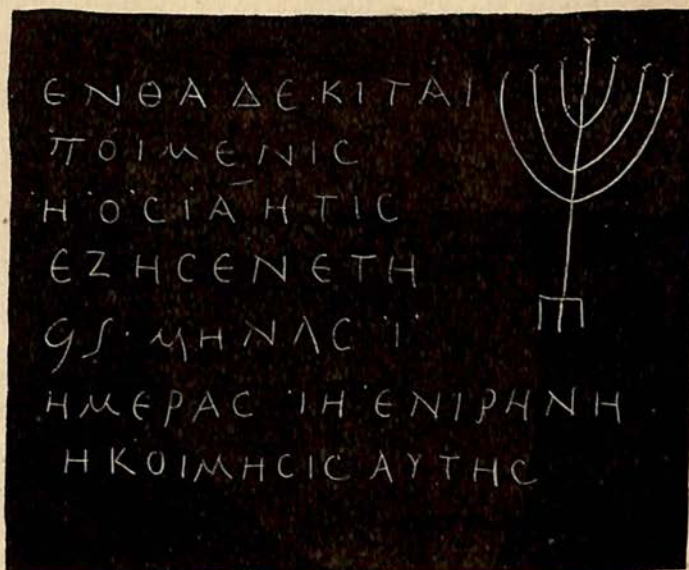 ΕΝΘΑ ΔΕ·ΚΙΤΑΙ
ΠΟΙΜΕΝΙC
Η ΟCΙΑ ΗΤΙC
ΕΖΗCΕΝ ΕΤΗ
ϤϚ· ΜΗΝΛC Ι
ΗΜΕΡΑC ΙΗ ΕΝΙΡΗΝΗ
Η ΚΟΙΜΗCΙC ΑΥΤΗC